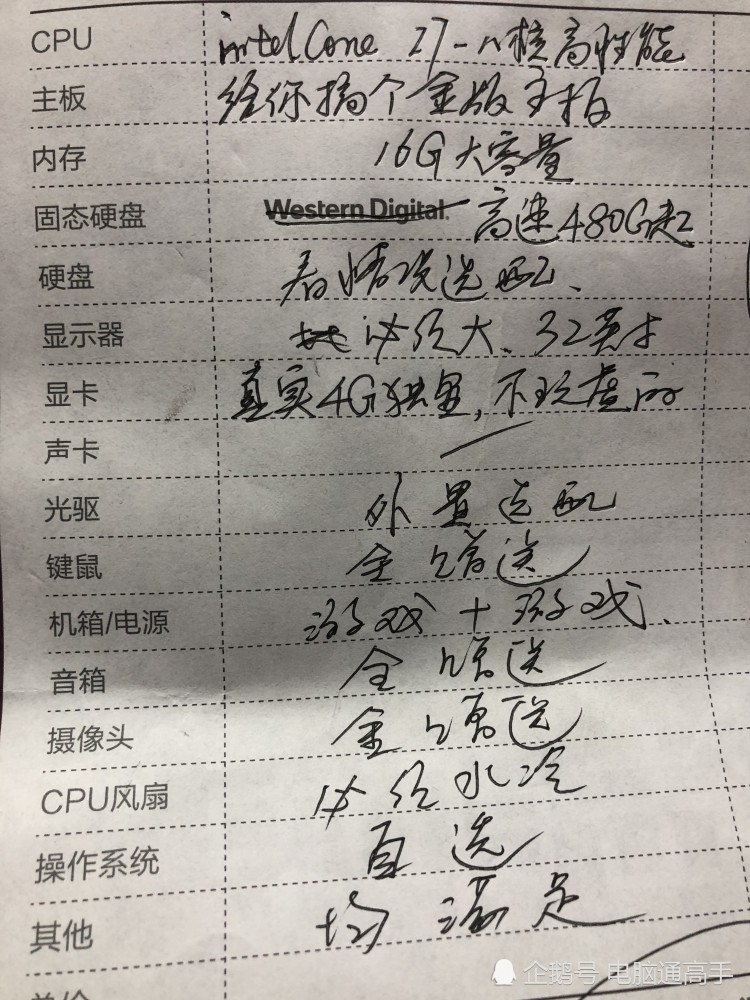 CPU intel Core i7-八核高性能
主板 给你搞个金版主板
内存 16G大容量
固态硬盘 Western Digital. 高速480G起
硬盘 看情况选配、
显示器 必须大、32英寸
显卡 真实4G独显,不玩虚的
声卡
光驱 外置选配
键鼠 全赠送
机箱/电源 游戏+游戏、
音箱 全赠送
摄像头 全赠送
CPU风扇 必须水冷
操作系统 自选
其他 均满足
企鹅号 电脑通高手